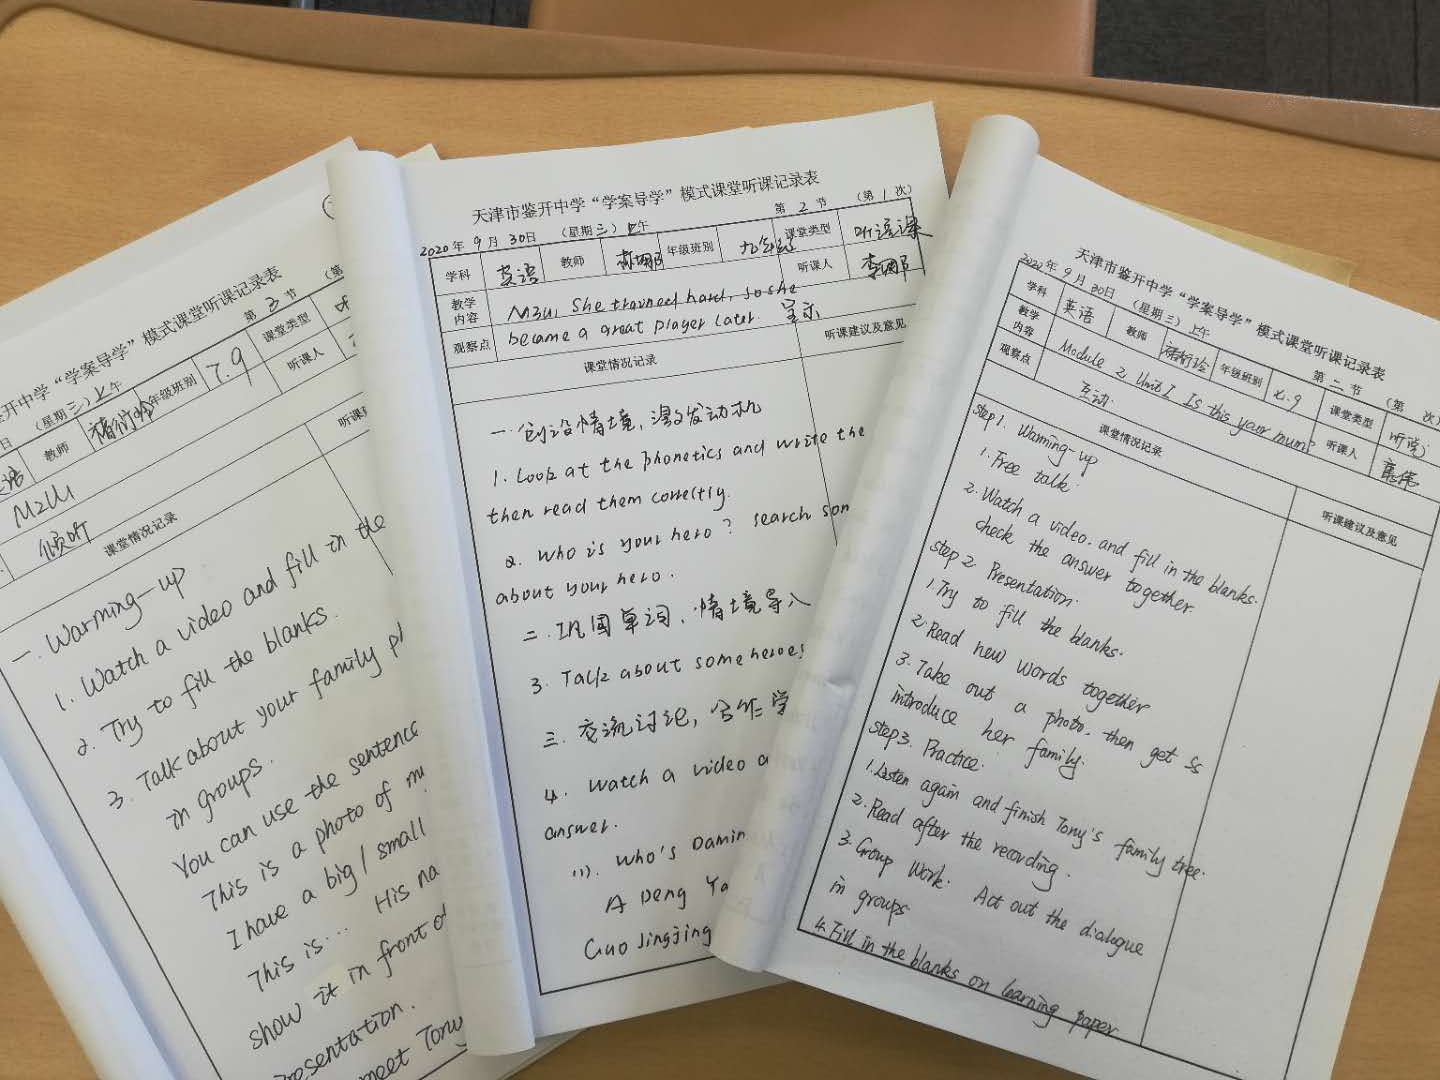 鉴开中学“学案导学”模式课堂听课记录表
日 (星期三) 上午 第 2 节 (第
教师 年级班别 7.9 课堂类型
听课人
M2U1
倾听
课堂情况记录
一. Warming-up
1. Watch a video and fill in the
2. Try to fill the blanks.
3. Talk about your family
in groups.
You can use the sentence
This is a photo of
I have a big / small
This is... His na
show it in front of
resentation.
meet Tony
天津市鉴开中学“学案导学”模式课堂听课记录表
2020 年 9 月 30 日 (星期三) 上午 第 2 节 (第 1 次)
学科 英语 教师 年级班别 课堂类型 听说课
教学内容 M3U1 She trained hard, so she 听课人 李娜
became a great player later.
观察点 呈示
课堂情况记录 听课建议及意见
一. 创设情境, 激发动机
1. Look at the phonetics and write the
then read them correctly.
2. Who is your hero? search som
about your hero.
二. 巩固单词, 情境导入
3. Talk about some heroes
三. 交流讨论, 合作学
4. Watch a video a
answer.
(1). Who's Damin
A Deng Ya
Guo Jingjing
天津市鉴开中学“学案导学”模式课堂听课记录表
2020 年 9 月 30 日 (星期三) 上午 第 二 节 (第 次)
学科 英语 教师 年级班别 七.9 课堂类型
教学内容 Module 2 Unit 1 Is this your mum? 听课人
观察点 互动.
课堂情况记录 听课建议及意见
step 1. Warming-up
1. Free talk.
2. Watch a video. and fill in the blanks.
check the answer together.
step 2. Presentation.
1. Try to fill the blanks.
2. Read new words together
3. Take out a photo. then get ss
introduce her family.
step 3. Practice.
1. Listen again and finish Tony's family tree.
2. Read after the recording.
3. Group Work. Act out the dialogue
in groups
4. Fill in the blanks on learning paper